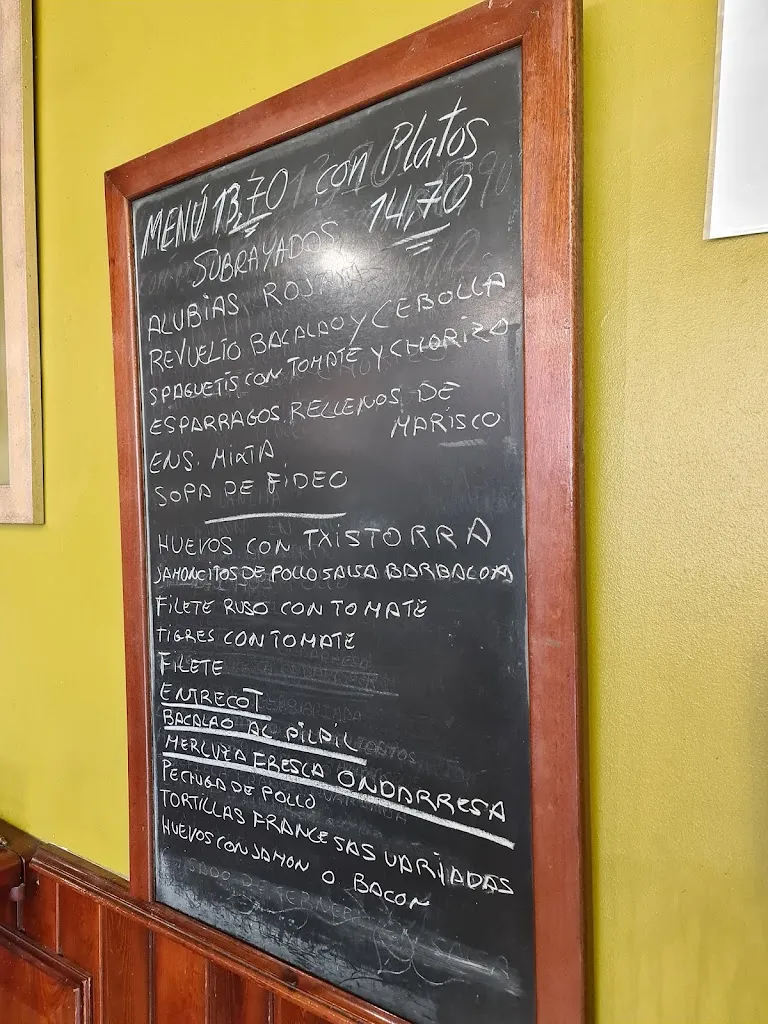 MENÚ 13,70 con Platos
SUBRAYADOS 14,70
ALUBIAS ROJAS
REVUELTO BACALAO Y CEBOLLA
SPAGUETIS CON TOMATE Y CHORIZO
ESPARRAGOS RELLENOS DE
MARISCO
ENS. MIXTA
SOPA DE FIDEO
HUEVOS CON TXISTORRA
JAMONCITOS DE POLLO SALSA BARBACOA
FILETE RUSO CON TOMATE
TIGRES CON TOMATE
FILETE
ENTRECOT
BACALAO AL PILPIL
MERLUZA FRESCA ONDARRESA
PECHUGA DE POLLO
TORTILLAS FRANCESAS VARIADAS
HUEVOS CON JAMON O BACON